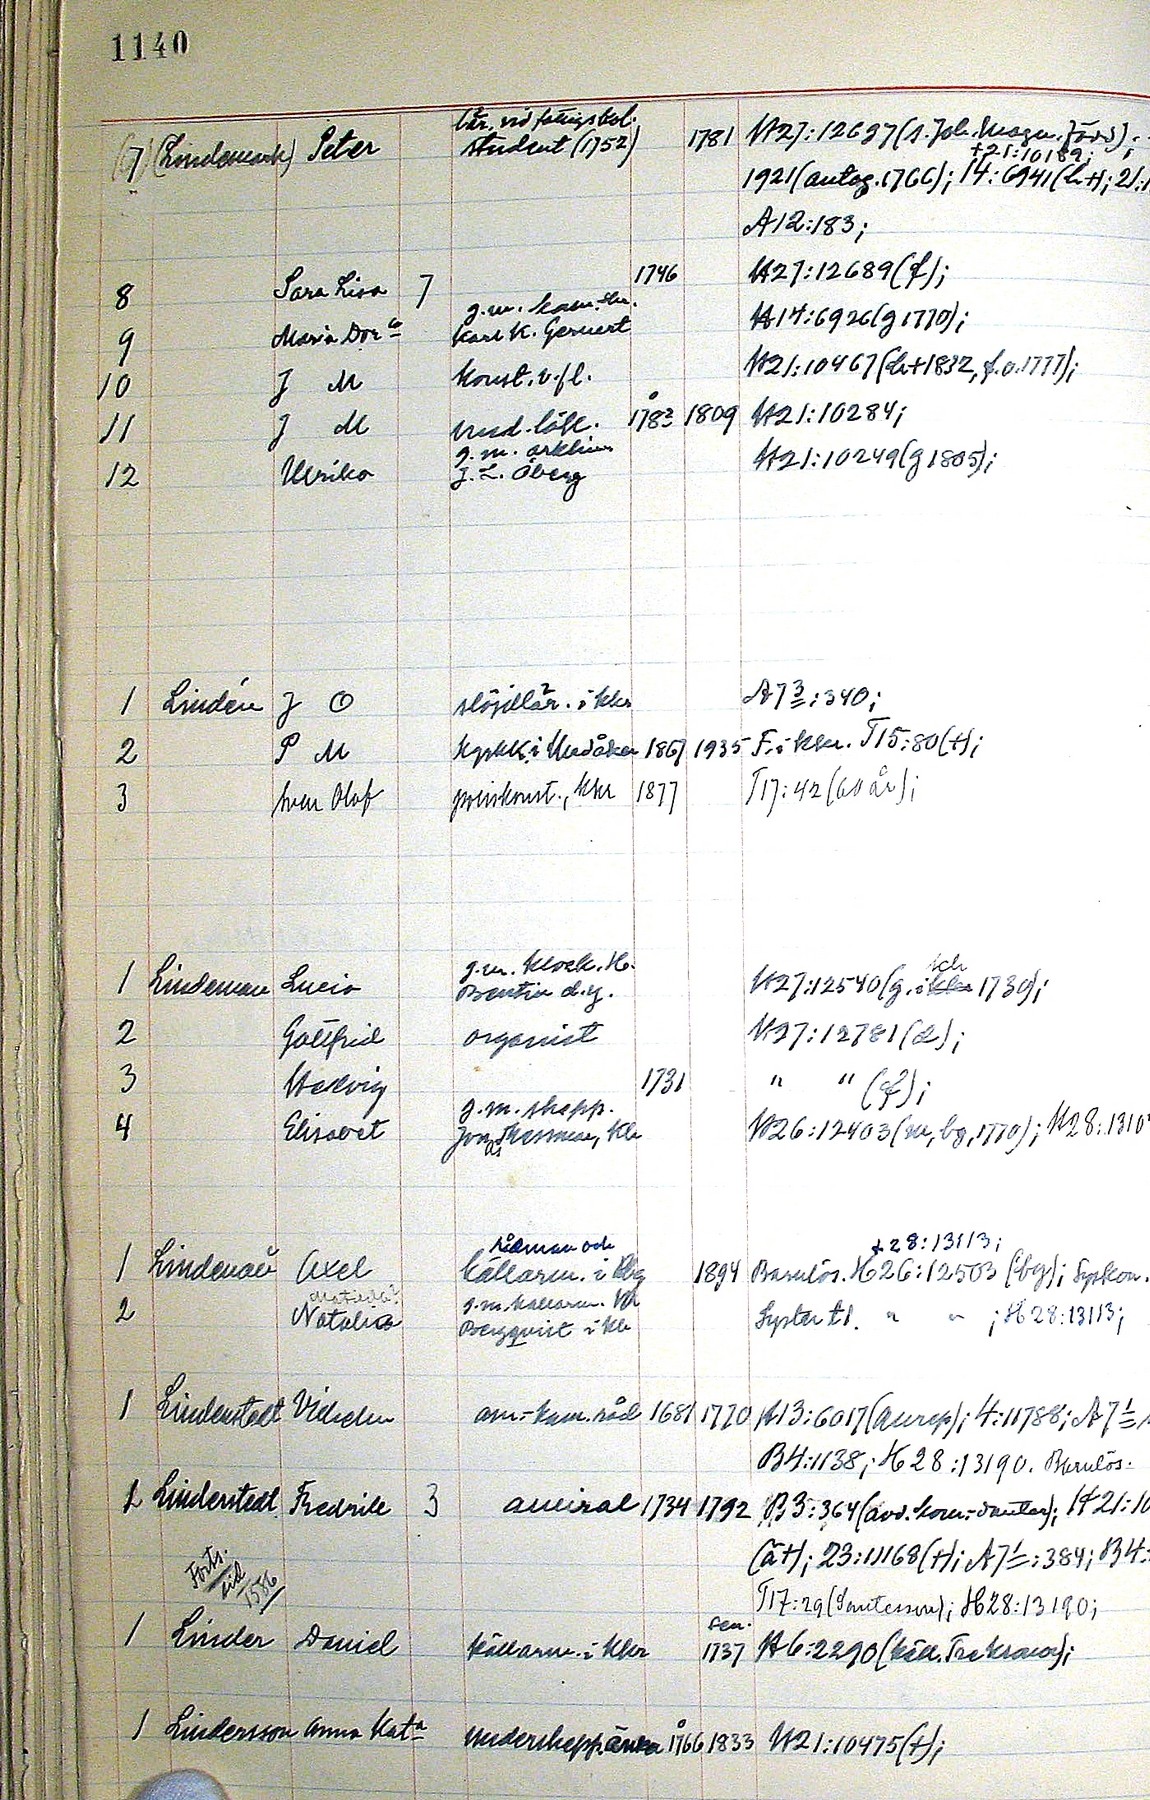 1140
lär. vid
(7) (Lindemark) Peter student (1752) 1781 H27:12697 (s. Joh. Magn. född);
+21:10189;
1921 (autog. 1766); 14:6941 (h+; 21:1
A12:183;
8 Sara Lisa 7 1746 H27:12689 (f);
g.m. kam.skr.
9 Maria Dor:a Karl K. Gernert H14:6926 (g 1770);
10 J M konst. v. fl. H21:10467 (h+1832, f.o. 1777);
11 J M und. löjt. 1783 1809 H21:10284;
g.m. arklim
12 Ulrika J. L. Öberg H21:10249 (g 1805);
1 Lindén J O slöjdlär. i kkr A7 3:340;
2 P M kyrkh. i 1867 1935 F. i kkr. T15:80 (+);
3 Sven Olof konst., kkr 1877 T17:42 (60 år);
g.m. klock. H.
1 Lindeman Lucia Bentin d.y. H27:12540 (g. i kkr 1730);
2 Gottfrid organist H27:12781 (d);
3 Hedvig 1731 " " (f);
g.m. skepp.
4 Elisabet Jonas kkr H26:12403 (m, bg, 1770); H28:1310
rådman och +28:13113;
1 Lindenau Axel källarm. i kbg 1894 Barnlös. H26:12503 (bg); Syskon.
Matilda?
g.m. källarm. kr
2 Natalia Bergqvist i kkr Syster t 1. " " ; H28:13113;
1 Linderstedt Vilhelm am.-kam.råd 1681 1770 A13:6017 (aurep); 4:11788; A7 1
B4:1138; H28:13190. Barnlös.
2 Linderstedt Fredrik 3 amiral 1734 1792 B3:364 (avd. kom.-danter); H21:10
(ä+); 23:11168 (+); A7 1:384; B4:
Forts. sid 1586
T17:29 (Santesson); H28:13190;
sen.
1 Linder Daniel källarm. i kkr 1737 H6:2290 (käll. Tre kronor);
1 Lindersson Anna Kat:a underskepp.änka 1766 1833 H21:10475 (+);